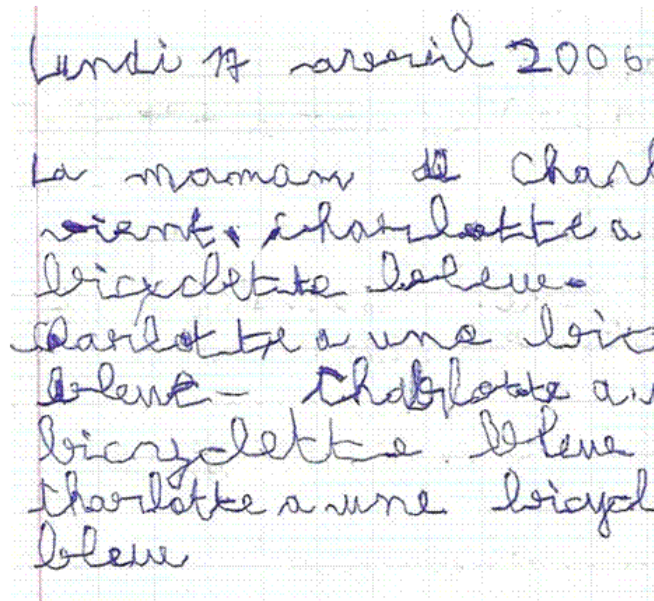 Lundi 17 avreil 2006
La maman de Charl
vient. charlotte a
bicycletте bleue.
Charlotte a une bic
bleue - Charlotte a
bicryclette bleue
Charlotte a une bicycl
bleue